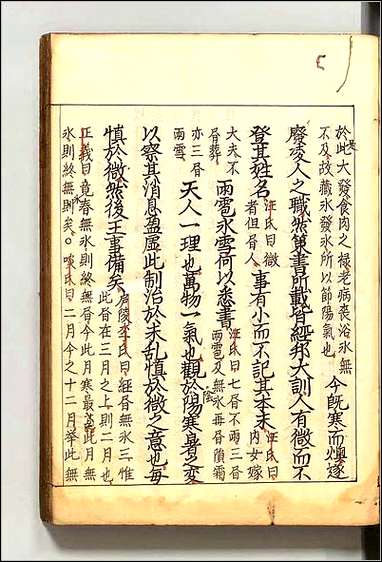 於此大發食肉之祿老病喪浴氷無
不及故藏氷發氷所以節陽氣也
今既寒而燠遂
廢凌人之職然策書所載皆經邦大訓人有微而不
登其姓名
汪氏曰微
者但書人
事有小而不記其本末
汪氏曰
內女嫁
大夫不
書葬
雨雹氷雪何以悉書
汪氏曰七書不雨三書
雨雹及無氷再書隕霜
亦三書
雨雪
天人一理也萬物一氣也觀於陰陽寒暑之変
以察其消息盈虛此制治於未乱慎於微之意也每
慎於微然後王事備矣
廬陵李氏曰經書無氷三惟
此書在三月之上則二月也
正義曰竟春無氷則終無書今此月寒最甚此月無
氷則終無氷矣○啖氏曰二月今之十二月举此無